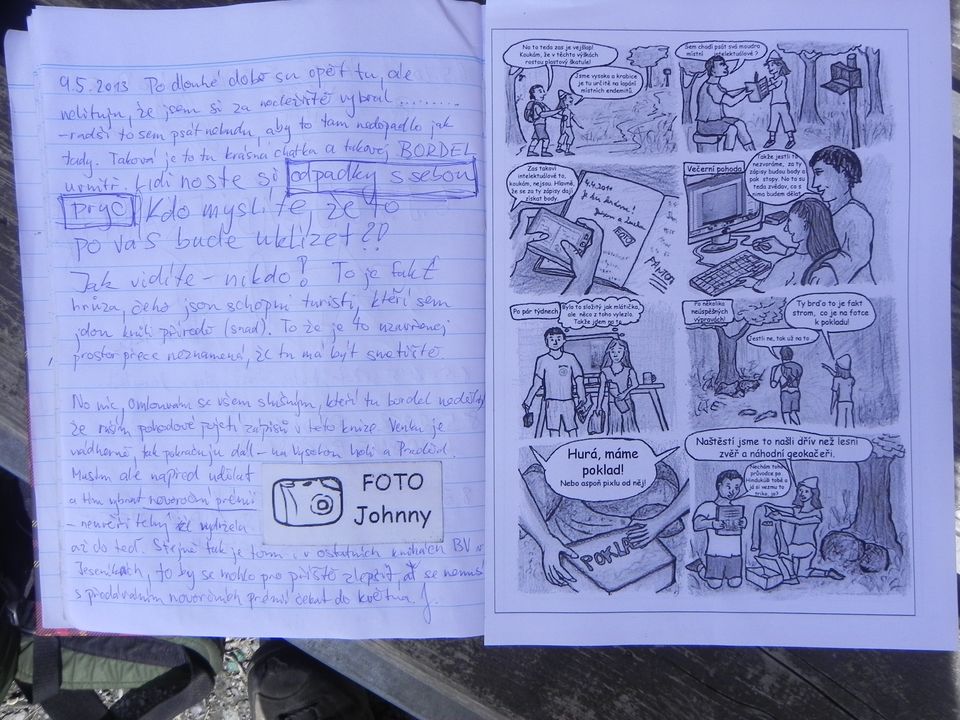 9.5.2013 Po dlouhé době su opět tu, ale
nelituju, že jsem si za nocležiště vybral .........
– radši to sem psát nebudu, aby to tam nedopadlo jak
tady. Taková je to tu krásná chatka a takovej BORDEL
uvnitř. Lidi noste si odpadky s sebou
pryč! Kdo myslíte, že to
po vás bude uklízet?!
Jak vidíte – nikdo! To je fakt
hrůza, čeho json schopni turisti, kteří sem
jdou kvůli přírodě (snad). To že je to uzavřenej
prostor přece neznamená, že tu má být smetiště.
No nic, omlouvám se všem slušným, kteří tu bordel nedělaj,
že ruším pohodové pojetí zápisů v této knize. Venku je
nádherně, tak pokračuju dál – na Vysokou holi a Praděd.
Musím ale napřed udělat
a Hm vybrat novoroční prémii
– neuvěřitelný že vydržela
až do teď. Stejně tak je tomu i v ostatních knihách BV v
Jeseníkách, to by se mohlo pro příště zlepšit, ať se nemusí
s předáváním novoročních prémií čekat do května. J.
FOTO
Johnny
No to teda zas je vejšlap!
Koukám, že v těchto výškách
rostou plastový škatule!
Jsme vysoko a krabice
je tu určitě na lapání
místních endemitů.
Sem chodí psát svá moudra
místní intelektuálové ?
Zas takoví
intelektuálové to,
koukám, nejsou. Hlavně,
že se za ty zápisy dají
získat body.
4.4.2011
Večerní pohoda
Takže jestli to
nezvoráme, za ty
zápisy budou body a
pak stopy. No to su
teda zvědav, co s
nima budem dělat.
Po pár týdnech
Bylo to složitý jak mlátička,
ale něco z toho vylezlo.
Takže jdem na to
Po několika
neúspěšných
výpravách!
Jestli ne, tak už na to
Ty brďo to je fakt
strom, co je na fotce
k pokladu!
Hurá, máme
poklad!
Nebo aspoň pixlu od něj!
POKLAD
Naštěstí jsme to našli dřív než lesní
zvěř a náhodní geokačeři.
Nechám toho
průvodce po
Hindukúši tobě a
já si vezmu to
triko, jo?